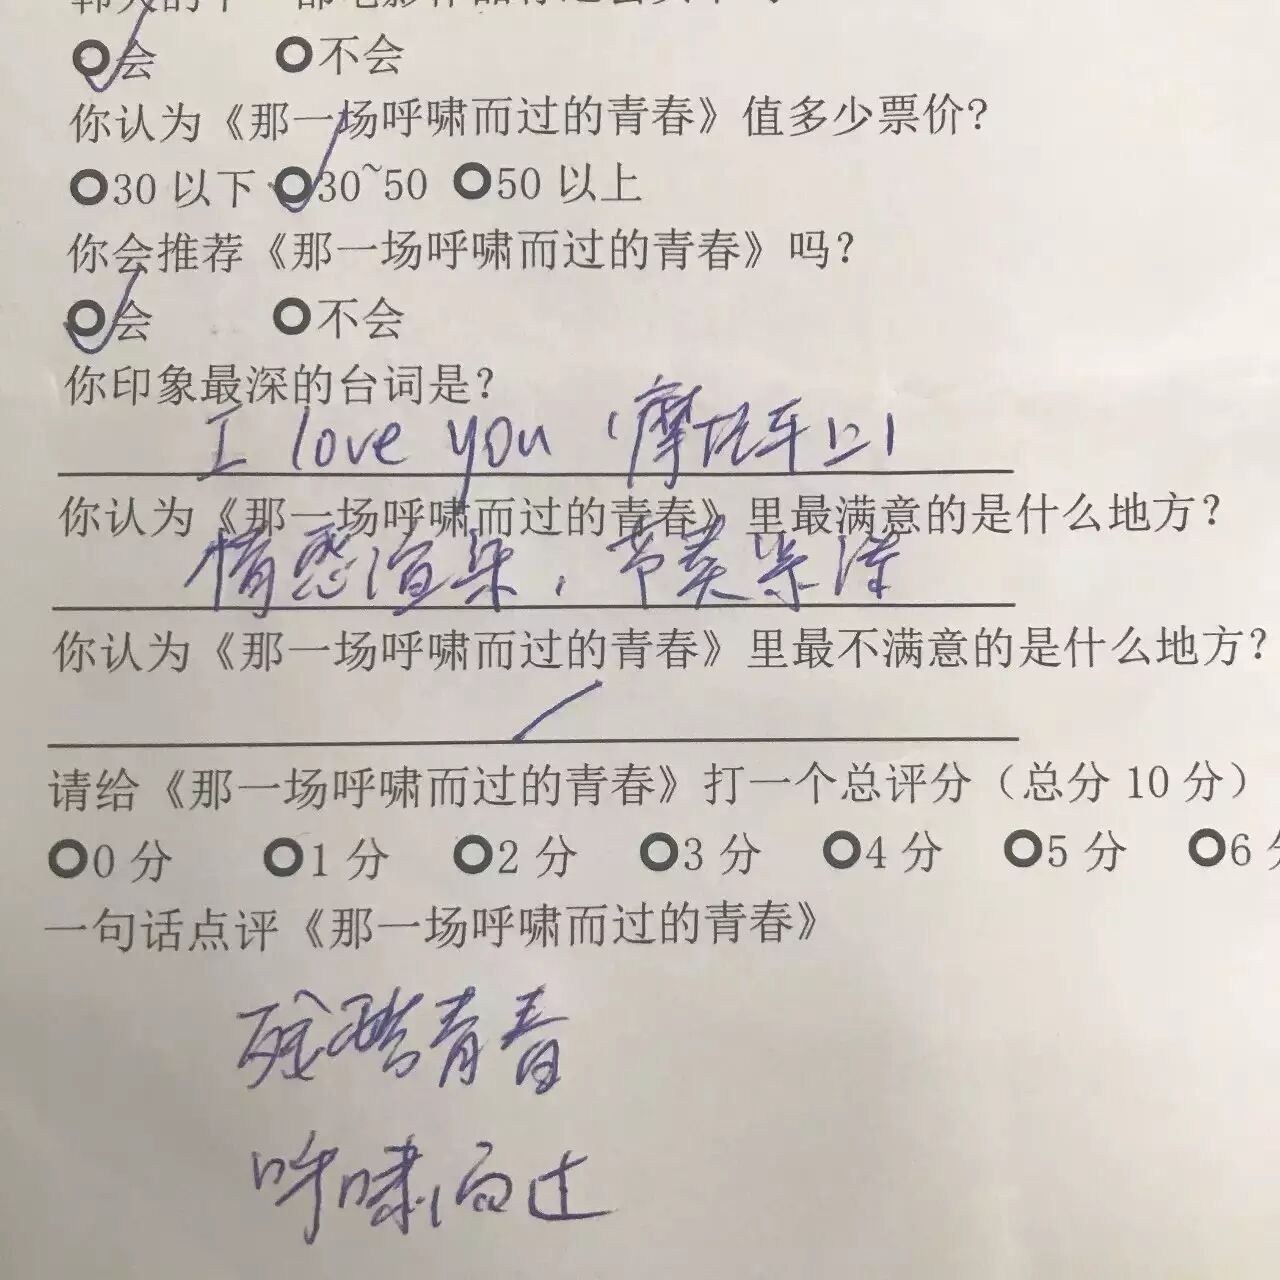 会 不会
你认为《那一场呼啸而过的青春》值多少票价?
30以下 30~50 50以上
你会推荐《那一场呼啸而过的青春》吗?
会 不会
你印象最深的台词是?
I love you (摩托车上)
你认为《那一场呼啸而过的青春》里最满意的是什么地方?
情感渲染,节奏紧凑
你认为《那一场呼啸而过的青春》里最不满意的是什么地方?
请给《那一场呼啸而过的青春》打一个总评分(总分10分)
0分 1分 2分 3分 4分 5分 6分
一句话点评《那一场呼啸而过的青春》
残酷青春
呼啸而过